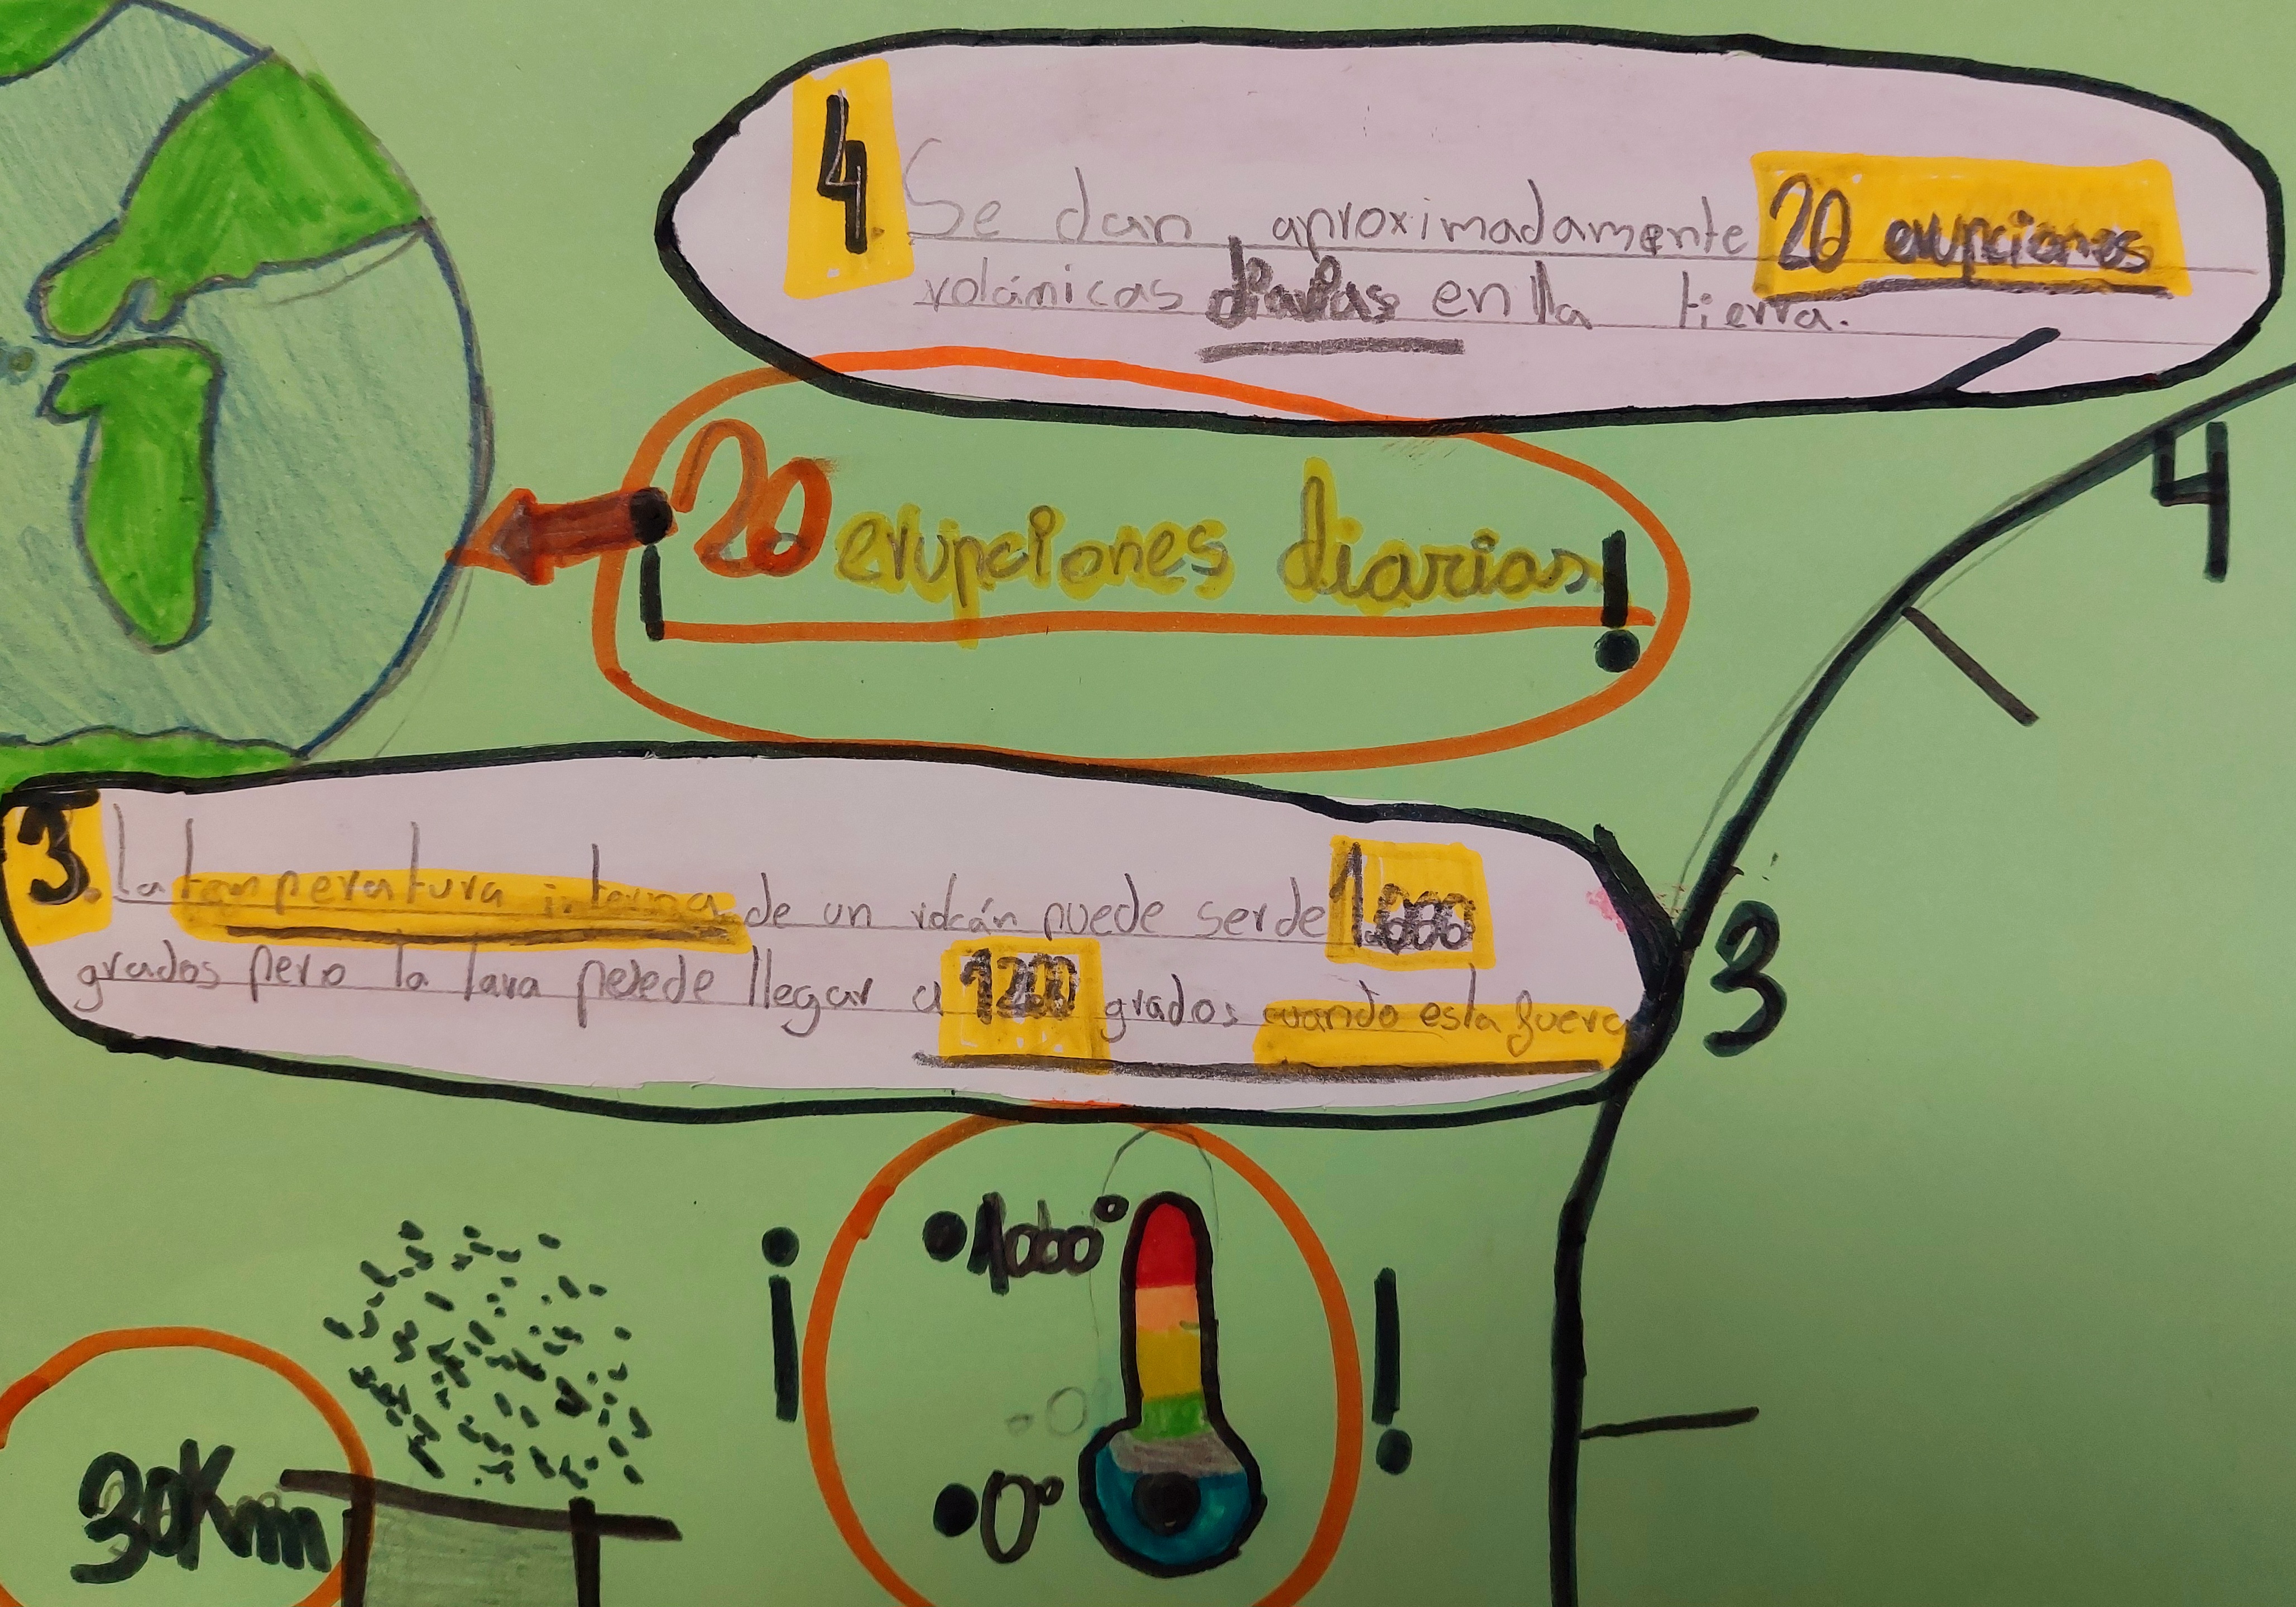 4. Se dan aproximadamente 20 erupciones
volánicas diarias en la tierra.
¡20 erupciones diarias!
4
3. La temperatura interna de un volcán puede ser de 1.000
grados pero la lava puede llegar a 1200 grados cuando esta fuera
3
¡ 1000° !
0°
30Km